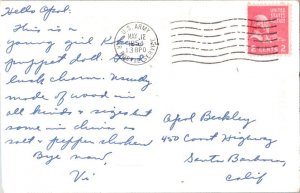 Hello Opal:
This is a
young girl K
puppet doll. Good
luck charm. Usually
made of wood in
all kinds & sizes but
some in china as
salt & pepper shakers
Bye now,
Vi
U.S. ARMY
MAY 12
130 PM
2 CENTS 2
Opal Beckley
450 Coast Highway
Santa Barbara,
Calif